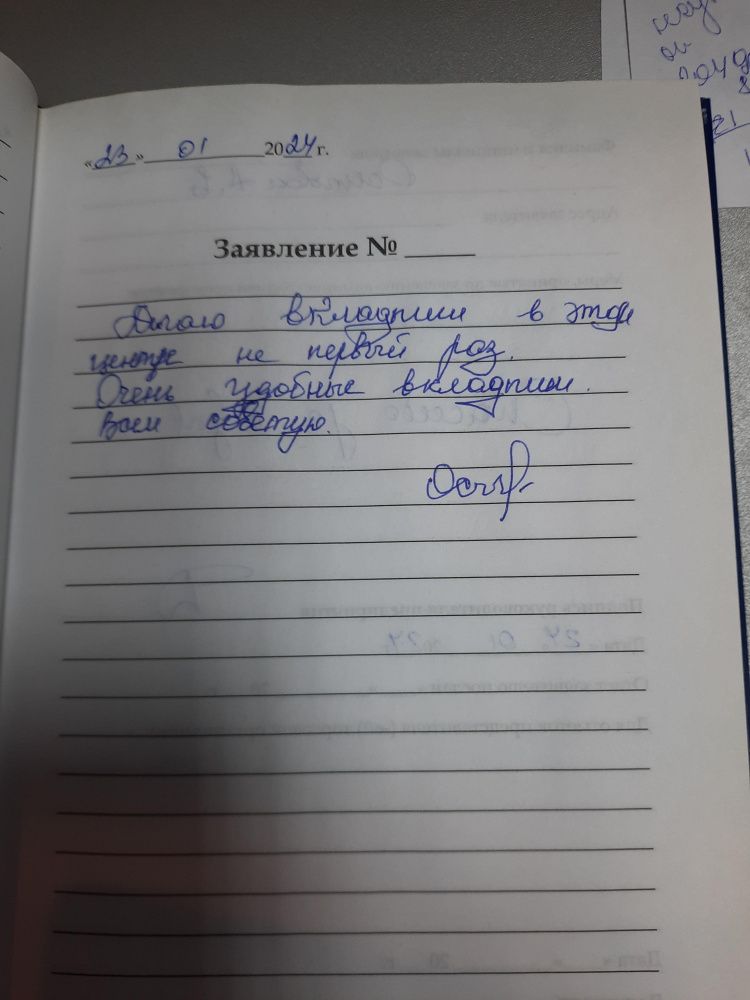 «23» 01 2024 г.
Заявление №
Делаю вкладыши в этом
центре не первый раз.
Очень удобные вкладыши.
Всем советую.